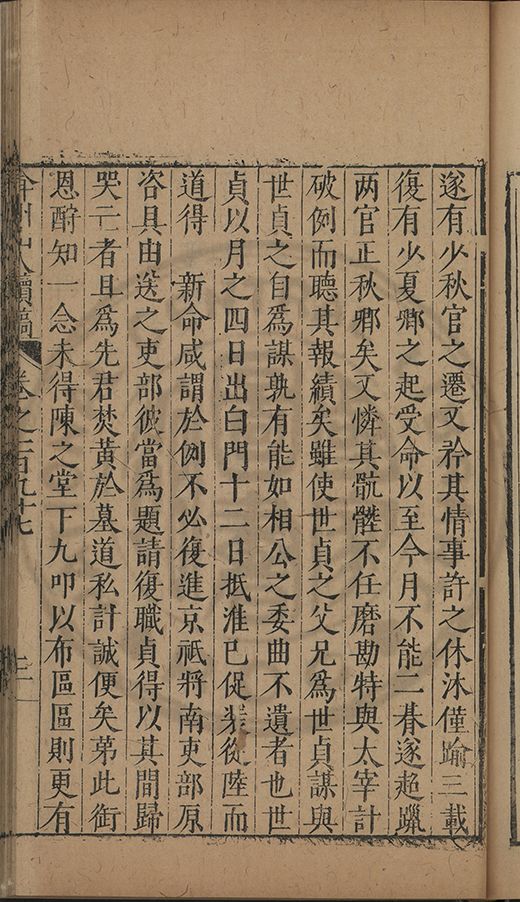 遂有少秋官之遷又矜其情事許之休沐僅踰三載
復有少夏卿之起受命以至今月不能二朞遂超躐
两官正秋卿矣又憐其骯髒不任磨勘特與太宰計
破例而聽其報績矣雖使世貞之父兄爲世貞謀與
世貞之自爲謀孰有能如相公之委曲不遺者也世
貞以月之四日出白門十二日抵淮已促裝從陸而
道得　新命咸謂於例不必復進京祗將南吏部原
咨具由送之吏部彼當爲題請復職貞得以其間歸
哭亡者且爲先君焚黃於墓道私計誠便矣苐此銜
恩酧知一念未得陳之堂下九叩以布區區則更有
弇州山人續稿　卷之一百九十七